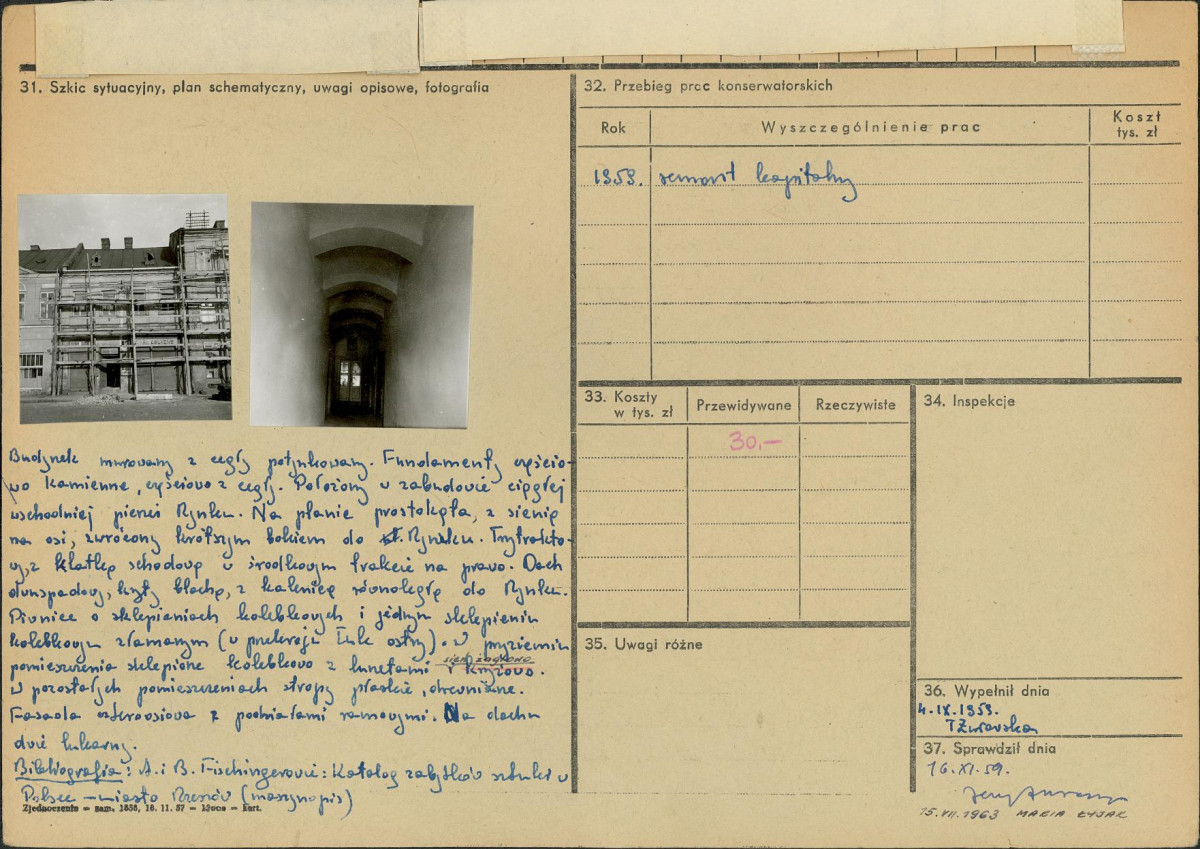 31. Szkic sytuacyjny, plan schematyczny, uwagi opisowe, fotografia
Budynek murowany z cegły potynkowany. Fundamenty częścio-
wo kamienne, częściowo z cegły. Położony w zabudowie ciągłej
wschodniej pierzei Rynku. Na planie prostokąta, z sienią
na osi, zwrócony krótszym bokiem do Rynku. Trytrakto-
wy, z klatką schodową w środkowym trakcie na prawo. Dach
dwuspadowy, kryty blachą, z kalenicą równoległą do Rynku.
Piwnice o sklepieniach kolebkowych i jednym sklepieniu
kolebkowym złamanym (w przekroju łuk ostry). W przyziemiu
pomieszczenia sklepione kolebkowo z lunetami i krzyżowo.
W pozostałych pomieszczeniach stropy płaskie, drewniane.
Fasada czteroosiowa z podziałami ramowymi. Na dachu
dwie lukarny.
Bibliografia: A. i B. Fischingerowie: Katalog zabytków sztuki w
Polsce – miasto Rzeszów (maszynopis)
Zjednoczenie — zam. 1856, 16. 11. 57 — kart.
32. Przebieg prac konserwatorskich
Rok
Wyszczególnienie prac
Koszt
tys. zł
1959. remont kapitalny
33. Koszty
w tys. zł
Przewidywane
Rzeczywiste
30.—
34. Inspekcje
35. Uwagi różne
36. Wypełnił dnia
4.IX.1959.
37. Sprawdził dnia
16.XI.59.
15.VII.1963 MARIA ŁYJAK